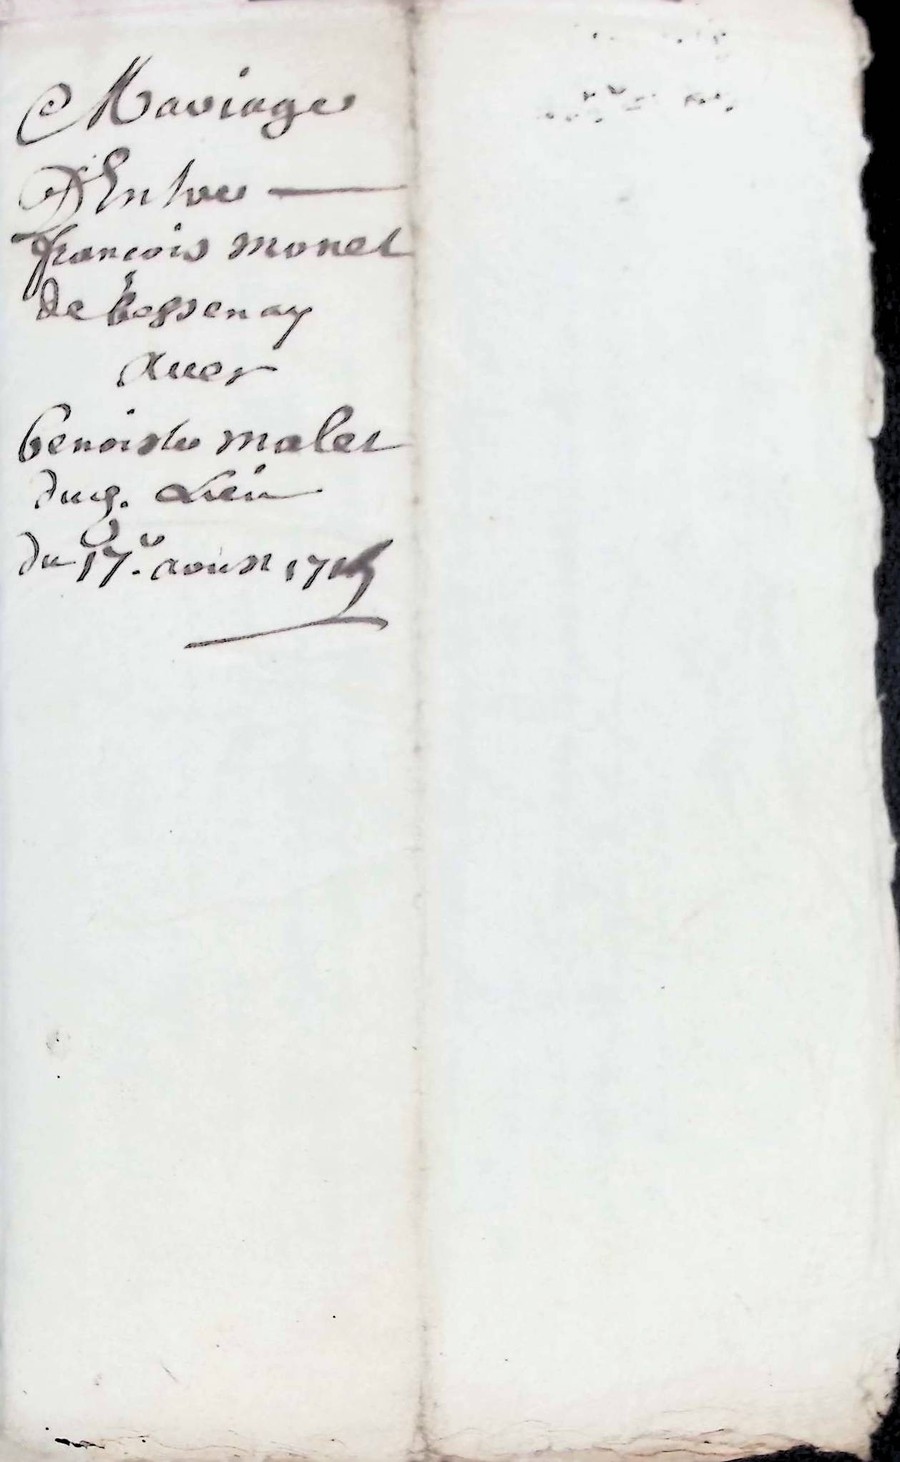 Mariage
D'Entre
françois monet
de bessenay
Avec
benoiste malet
dud. Lieu
du 17.e aoust